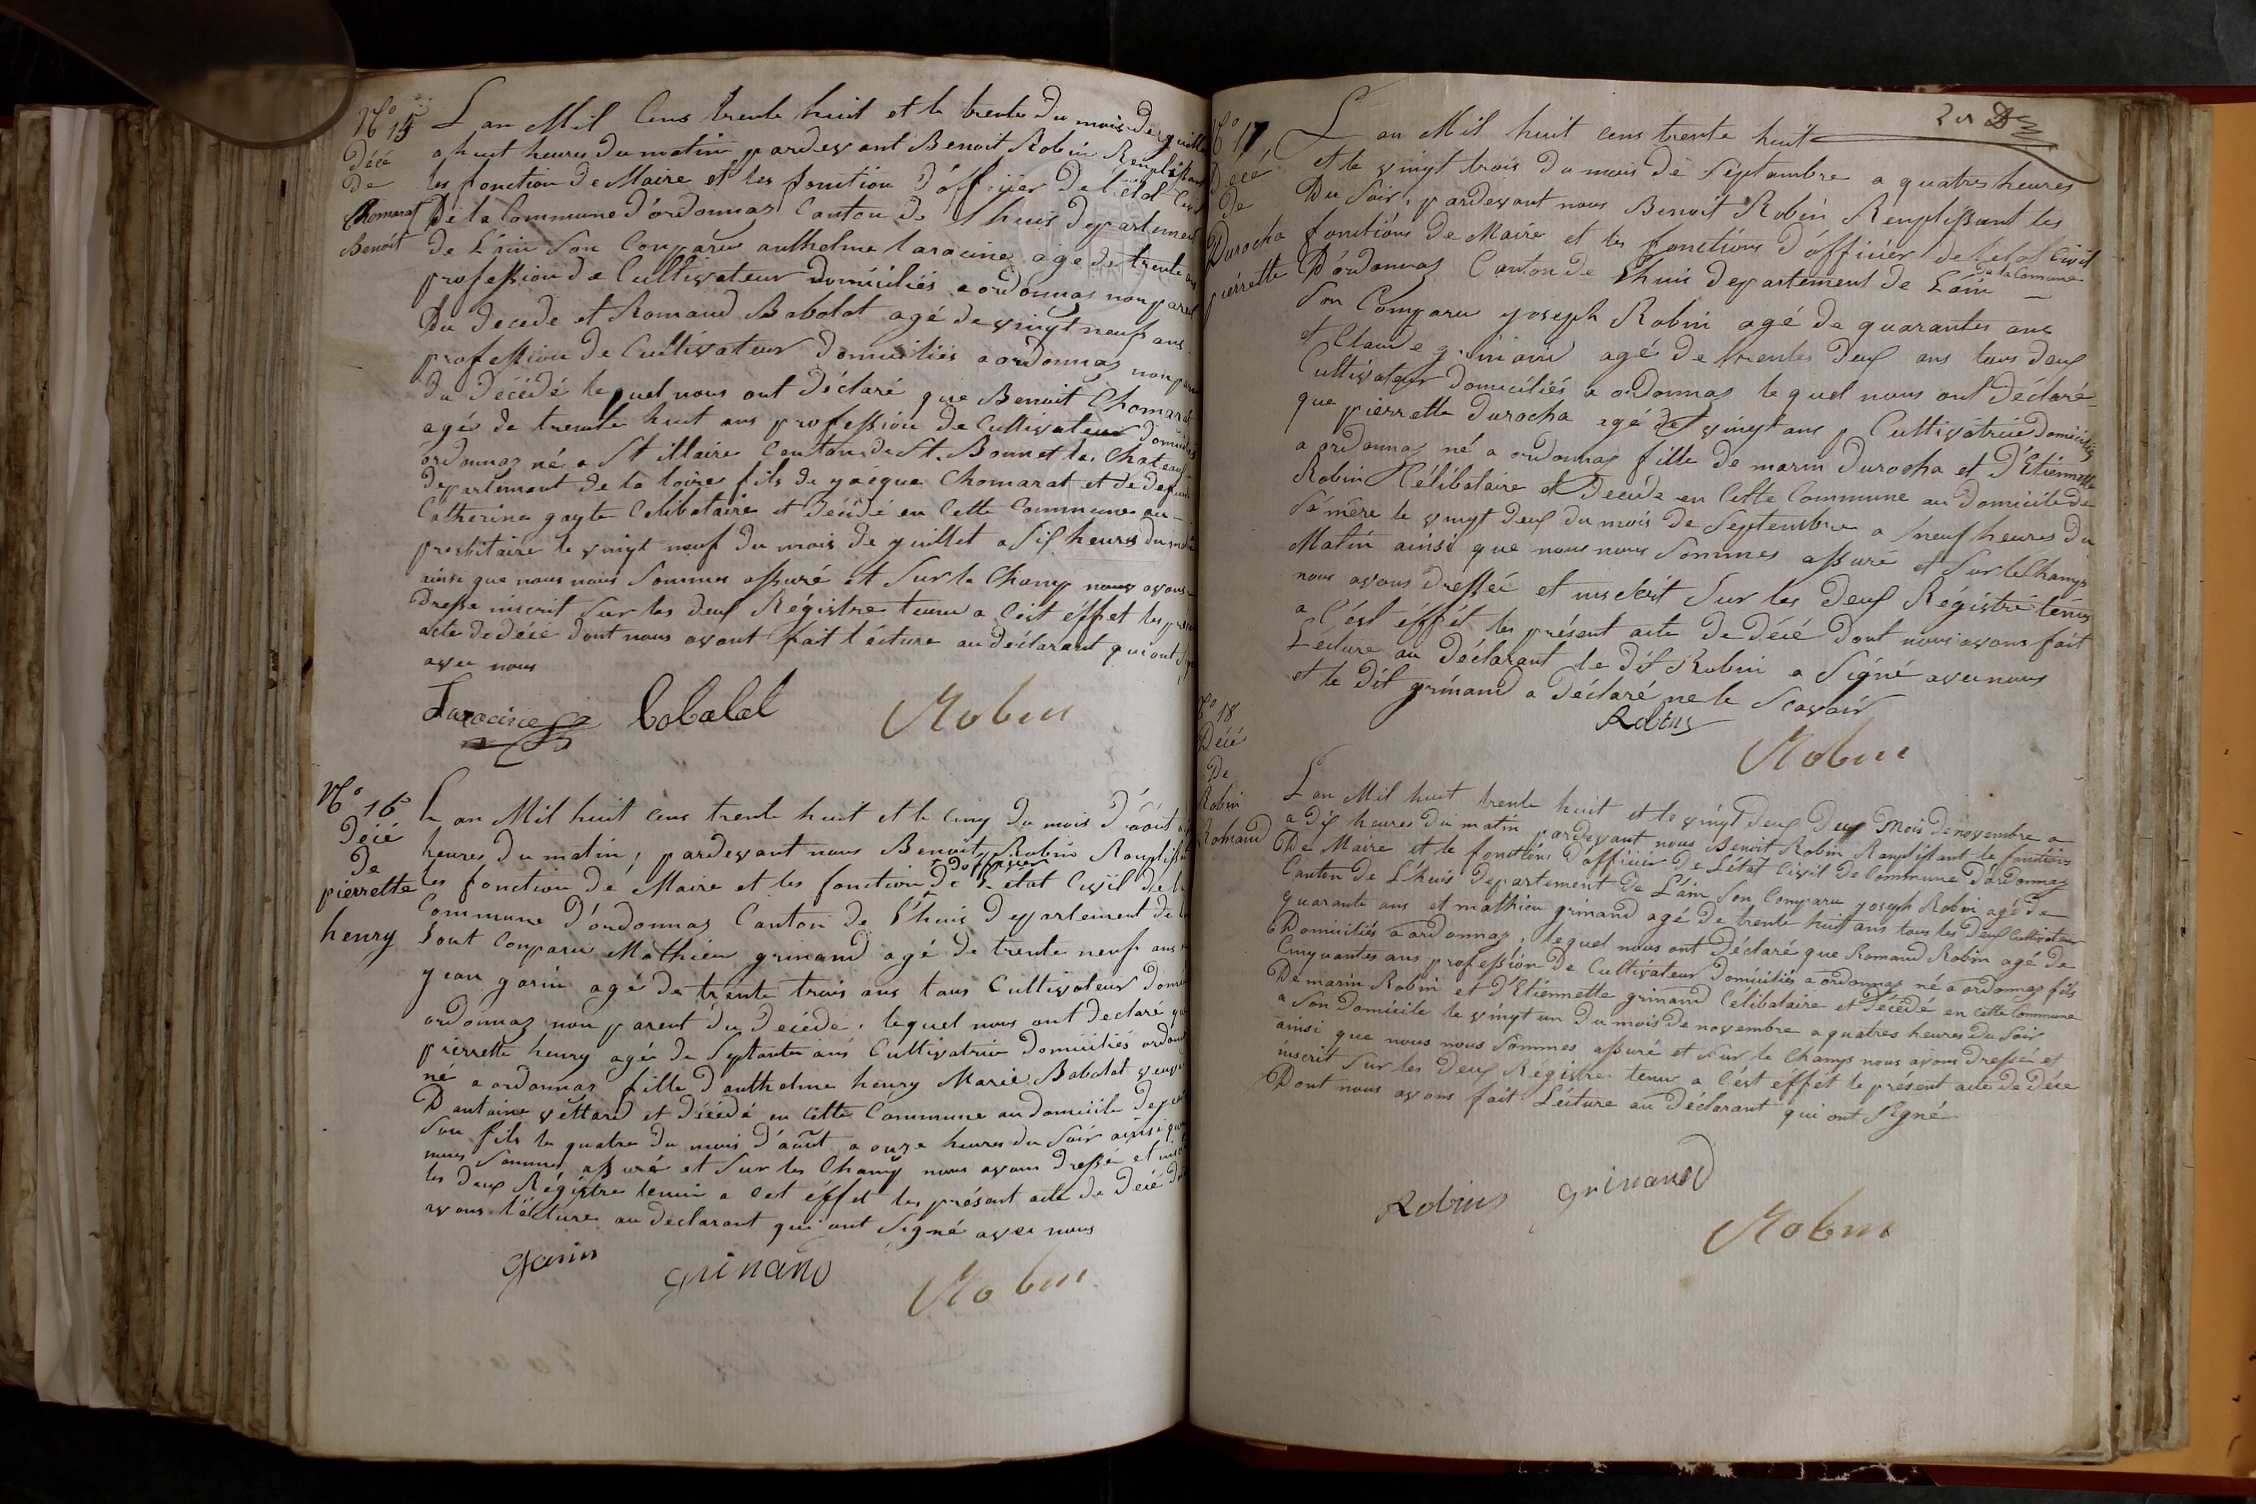 No 15
Décé
de
Chomarat
Benoit
L an Mil Cens trente huit et le trente du mois de juillet
a huit heures du matin pardevant Benoit Robin Remplissant
les fonction de Maire et les fonction d'officier de l'état Civil
De la Commune d'ordonnaz Canton de Lhuis departement
de L'ain Son Comparu anthelme laracine age de trente ans
profession de Cultivateur domiciliés a ordonnaz non parent
Du decede et Romand Babolat agé de vingt neuf ans
profession de Cultivateur domiciliés a ordonnaz non parent
du décédé lequel nous ont déclaré que Benoit Chomarat
agé de trente huit ans profession de Cultivateur domiciliés
ordonnaz né a St illaire Canton de St Bonnet le Chateau
département de la loire fils de jacque Chomarat et de defunte
Catherine gayte Célibataire et décédé en Cette Commune au
presbitaire le vingt neuf du mois de juillet a six heures du matin
ainsi que nous nous Sommes assuré et Sur le Champ nous avons
dressé inscrit Sur les deux Régistre tenu a C'est éffet les présent
acte de décé dont nous avont fait lécture au déclarant qui ont signé
avec nous
Laracine Bobalat Robin
No 16
Décé
De
pierrette
henry
L an Mil huit Cens trente huit et le Cinq du mois d'août a
heures du matin, pardevant nous Benoit Robin Remplissant
les fonction dé Maire et les fonction d'officier de L'état Civil de la
Commune D'ordonnaz Canton de L'huis Departement de L'ain
Sont Comparu Mathieu grinand agé de trente neuf ans et
jean garin agé de trente trois ans tous Cultivateur domiciliés
ordonnaz non parent du décéde, lequel nous ont déclaré que
pierrette henry agée de Septante ans Cultivatrice domiciliés ordonnaz
né a ordonnaz fille d'anthelme henry Marie Babolat veuve
D'antoine vettard et décédé en Cette Commune au domicile de
Son fils le quatre du mois d'août a onze heures du Soir ainsi que
nous Sommes assuré et Sur les Champ nous avons dressée et inscrit
les deux Régistre tenu a Cet éffet les présent acte de décé dont
avons lécture au déclarant qui ont Signé avec nous
Garin Grinand Robin
2
No 17
Décé
de
Durocha
pierrette
L an Mil huit cens trente huit
et le vingt trois du mois de Séptembre a quatres heures
Du Soir, pardevant nous Benoit Robin Rémplissant les
fonctions de Maire et les fonctions d'officier de l'etat Civil
de la Commune
D'ordonnaz Canton de Lhuis Departement de L'ain
Son Comparu joseph Robin agé de quarantes ans
et Claude grinand agé de trentes deux ans tous deux
Cultivateur domiciliés a ordonnaz lequel nous ont déclaré
que pierrette Durocha agé de vingt ans Cultivatrice domiciliés
a ordonnaz né a ordonnaz fille de marin durocha et D'Etiénnette
Robin Célibataire et décéde en Cette Commune au domicile de
Sa mére le vingt deux du mois de Septembre a neuf heures du
Matin ainsi que nous nous Sommes assuré et Sur le Champs
nous avons dressée et inscrit Sur les deux Régistre tenus
a C'ést éffét les présent acte de Décé dont nous avons fait
Lecture au Déclarant le dit Robin a Signé avec nous
et le Dit grinand a Déclaré ne le Scavoir
Robin
Robin
No 18
Décé
De
Robin
Romand
L an Mil huit trente huit et le vingt deux Deux Mois de novembre
a dix heures du matin pardevant nous Benoit Robin Remplissant le fonctions
De Maire et le fonctions d'officier de L'état Civil de Commune d'ordonnaz
Canton de L'huis Departement de L'ain Son Comparu joseph Robin agé de
quarante ans et mathieu grinand agé de trente huit ans tous les deux Cultivateur
Domiciliés a ordonnaz, lequel nous ont déclaré que Romand Robin agé de
Cinquantes ans profession De Cultivateur domiciliés a ordonnaz né a ordonnaz fils
De marin Robin et d'Etiénnette grinand Célibataire et décédé en Cette Commune
a Son domicile le vingt un du mois de novembre a quatres heures du Soir
ainsi que nous nous Sommes assuré et Sur le Champs nous avons dressée et
inscrit Sur les deux Régistre tenu a C'ést éffét le présent acte de déce
Dont nous avons fait Lécture au déclarant qui ont signé
Robin Grinand
Robin